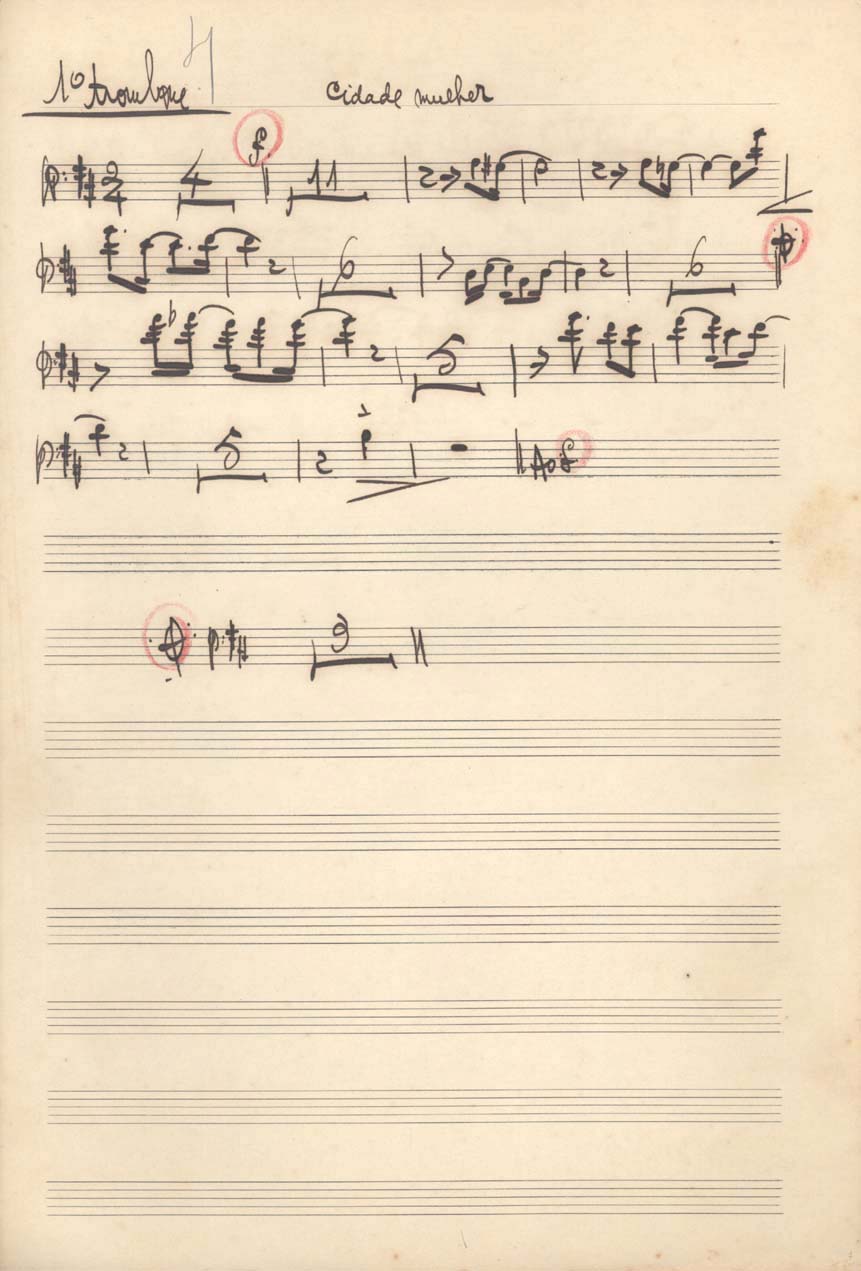 1º trombone
Cidade mulher
2 4 4 11
6 6
5
5 Ao
9